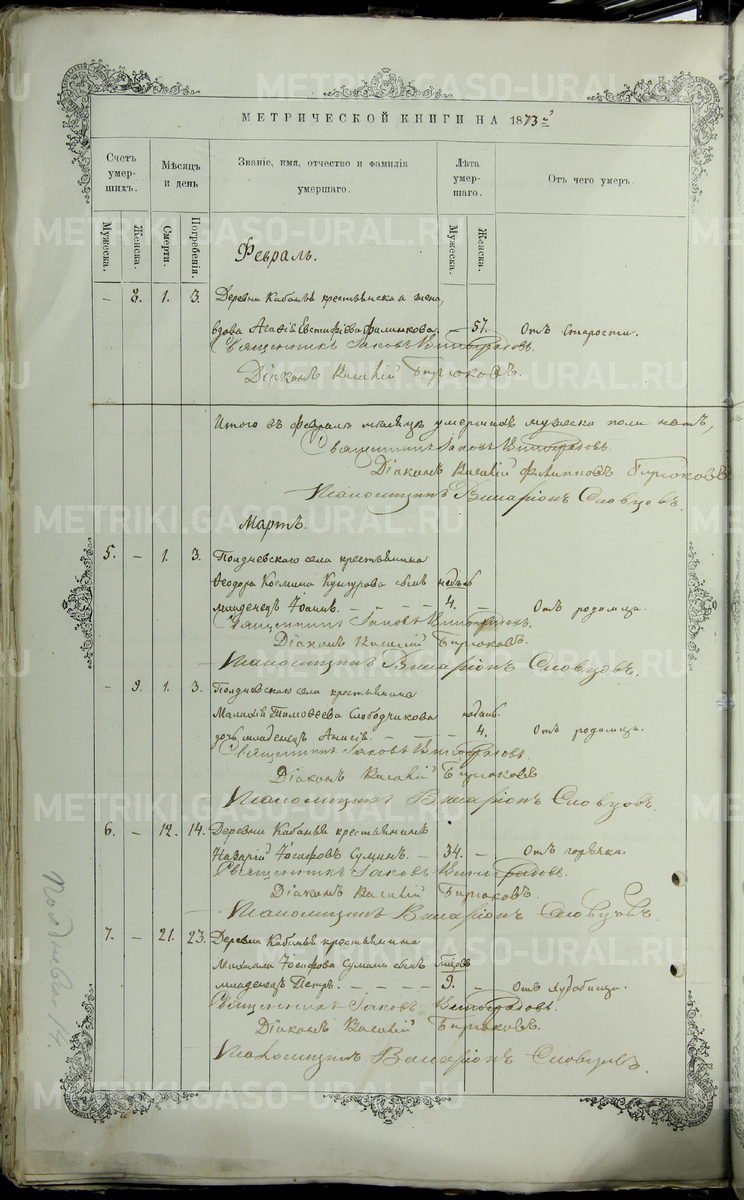 МЕТРИЧЕСКОЙ КНИГИ НА 1873й
Счетъ умер-шихъ.
Мѣсяцъ и день
Званіе, имя, отчество и фамилія умершаго.
Лѣта умер-шаго.
Отъ чего умеръ.
Мужеска.
Женска.
Смерти.
Погребенія.
Мужеска.
Женска.
Февраль.
– 8. 1. 3. Деревни Кабаньѣ крестьянская жена,
вдова Агафія Евстифіева Филинкова. – 57. Отъ старости.
Священникъ Іаковъ Виноградовъ.
Діаконъ Василій Бирюковъ.
Итого въ февралѣ мѣсяцѣ умершихъ мужеска пола нѣтъ,
Священникъ Іаковъ Виноградовъ.
Діаконъ Василій Филипповъ Бирюковъ
Псаломщикъ Виларіонъ Словцовъ.
Мартъ.
5. – 1. 3. Полдневскаго села крестьянина
Ѳеодора Космина Кунгурова сынъ недѣль
младенецъ Іоаннъ. – – – – 4. – Отъ родимца.
Священникъ Іаковъ Виноградовъ.
Діаконъ Василій Бирюковъ.
Псаломщикъ Виларіонъ Словцовъ.
– 9. 1. 3. Полдневскаго села крестьянина
Малахія Тимоѳеева Слободчикова недѣль
дочь младенецъ Анисія. – – – – 4. Отъ родимца.
Священникъ Іаковъ Виноградовъ.
Діаконъ Василій Бирюковъ
Псаломщикъ Виларіонъ Словцовъ.
6. – 12. 14. Деревни Кабаньѣ крестьянинъ
Назарій Іосифовъ Суминъ. – 34. – Отъ горячки.
Священникъ Іаковъ Виноградовъ.
Діаконъ Василій Бирюковъ.
Псаломщикъ Виларіонъ Словцовъ.
7. – 21. 23. Деревни Кабаньѣ крестьянина
Михаила Іосифова Сумина сынъ мѣсяцовъ
младенецъ Петръ. – – – – 9. – Отъ худобищи.
Священникъ Іаковъ Виноградовъ.
Діаконъ Василій Бирюковъ.
Псаломщикъ Виларіонъ Словцовъ.
Полдневая 14.
METRIKI.GASO-URAL.RU